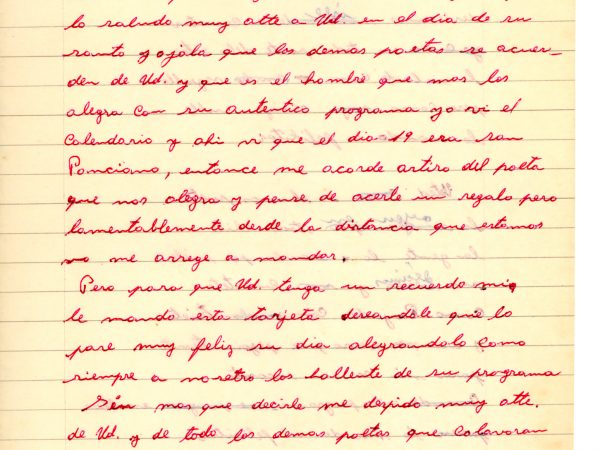 lo saludo muy atte a Ud. en el dia de su
santo y ojala que los demas poetas se acuer_
den de Ud. y que es el hombre que mas los
alegra con su autentico programa yo vi el
Calendario y ahi vi que el dia 19 era san
Ponciano, entonce me acorde artiro del poeta
que nos alegra y pense de acerle un regalo pero
lamentablemente desde la distancia que estamos
no me arrege a mandar.
Pero para que Ud. tenga un recuerdo mio
le mando esta tarjeta deseandole que lo
pase muy feliz su dia alegrandolo como
siempre a nosotro los hollente de su programa
Sén mas que decirle me despido muy atte.
de Ud. y de todo los demas poetas que colavoran